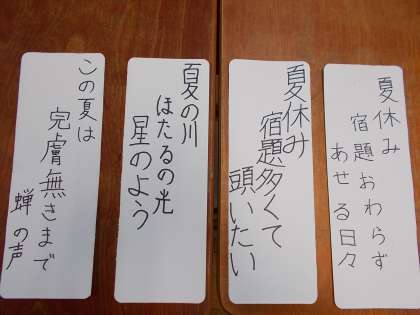 夏休み
宿題おわらず
あせる日々
夏休み
宿題多くて
頭いたい
夏の川
ほたるの光
星のよう
この夏は
完膚無きまで
蝉の声